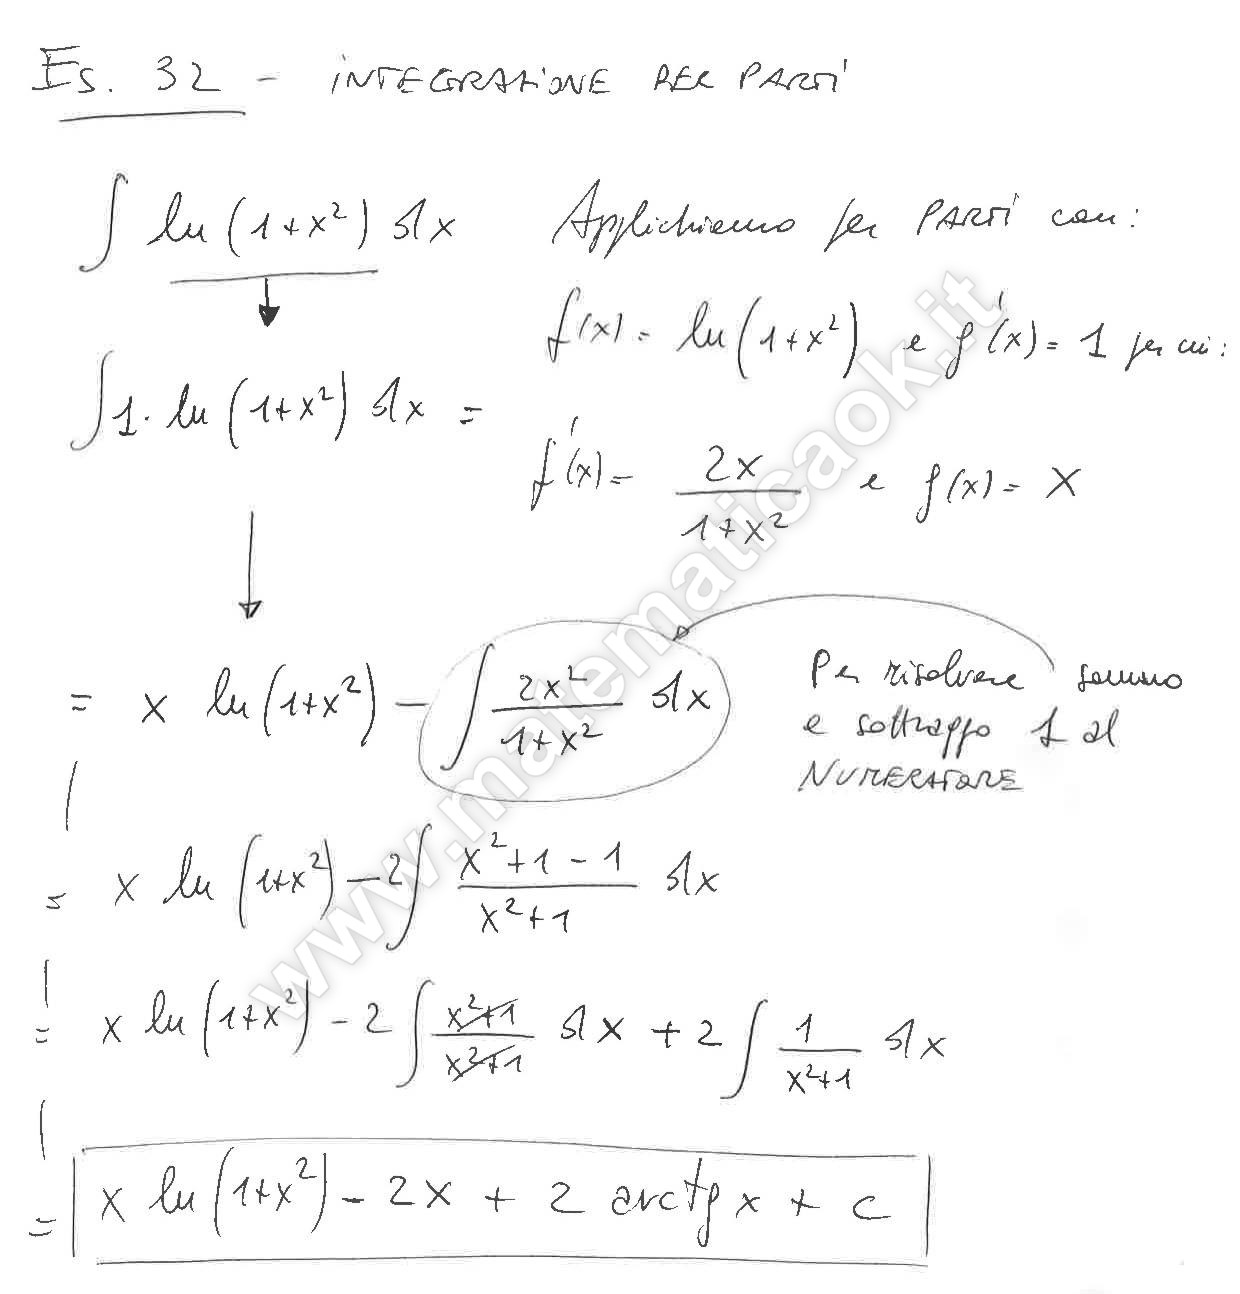 Es. 32 - INTEGRAZIONE PER PARTI
∫ ln(1+x²) dx Applichiamo per PARTI con:
f(x) = ln(1+x²) e g'(x) = 1 per cui:
∫ 1 · ln(1+x²) dx =
f'(x) = 2x/(1+x²) e g(x) = x
= x ln(1+x²) - ∫ 2x²/(1+x²) dx
Per risolvere sommo
e sottraggo 1 al
NUMERATORE
= x ln(1+x²) - 2∫ (x²+1-1)/(x²+1) dx
= x ln(1+x²) - 2∫ (x²+1)/(x²+1) dx + 2∫ 1/(x²+1) dx
= x ln(1+x²) - 2x + 2 arctg x + c
www.matematicaok.it